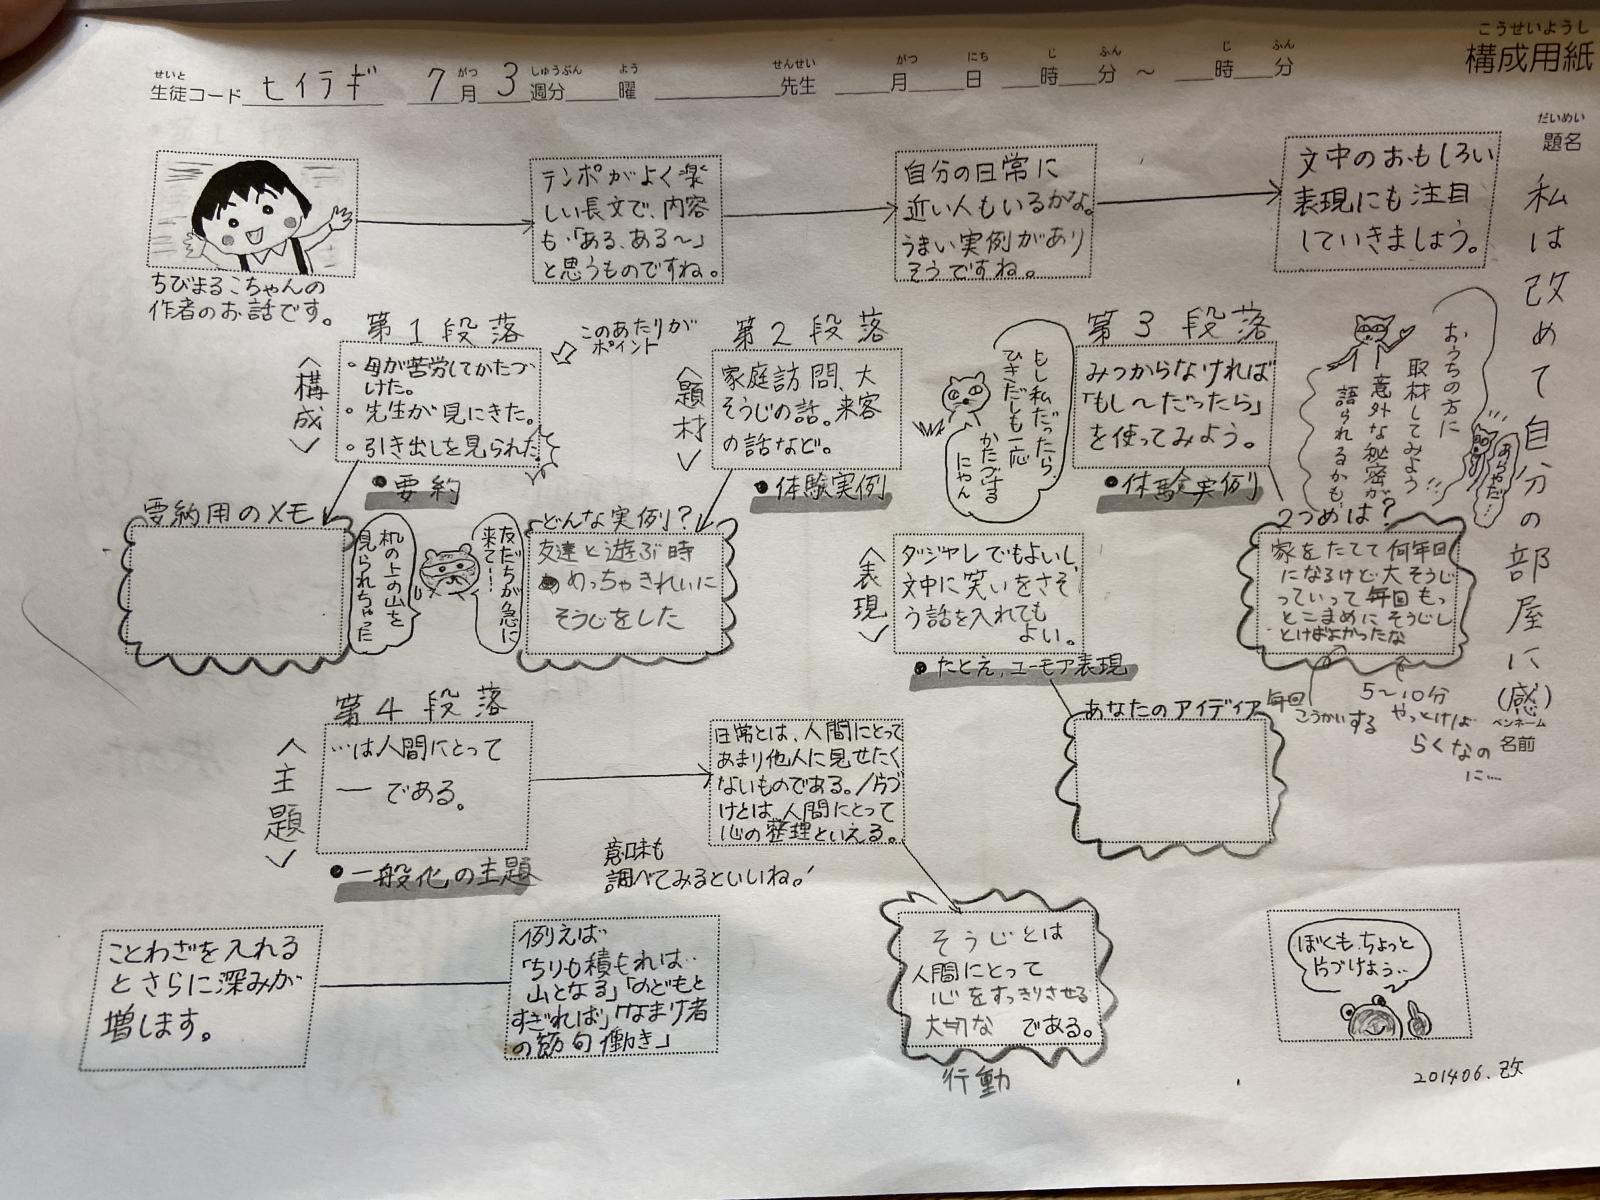 こうせいようし
構成用紙
せいと
生徒コード セイラギ 7月 3週分 曜 先生 月 日 時 分 ～ 時 分
がつ しゅうぶん よう せんせい がつ にち じ ふん じ ふん
だいめい
題名
私は改めて自分の部屋に(感)
ペンネーム
名前
ちびまるこちゃんの
作者のお話です。
テンポがよく楽
しい長文で、内容
も「ある、ある～」
と思うものですね。
自分の日常に
近い人もいるかな。
うまい実例があり
そうですね。
文中のおもしろい
表現にも注目
していきましょう。
第1段落
このあたりが
ポイント
〈構成〉
・母が苦労してかたづ
けた。
・先生が見にきた。
・引き出しを見られた
●要約
要納用のメモ
机の上の山を
見られちゃった
第2段落
〈題材〉
家庭訪問、大
そうじの話。来客
の話など。
●体験実例
どんな実例?
友達と遊ぶ時
めっちゃきれいに
そうじをした
友だちが急に
来て…!
もし私だったら
ひきだしも一応
かたづける
にゃん
第3段落
みつからなければ
「もし～だったら」
を使ってみよう。
●体験実例
おうちの方に
取材してみよう
意外な秘密が
語られるかも!!
2つめは?
家をたてて何年回
になるけど大そうじ
っていって毎回もっ
とこまめにそうじし
とけばよかったな
毎回
こうかいする
5～10分
やっとけば
らくなの
に…
〈表現〉
ダジャレでもよいし
文中に笑いをさそ
う話を入れても
よい。
●たとえ、ユーモア表現
あなたのアイディア
第4段落
〈主題〉
…は人間にとって
― である。
●一般化の主題
日常とは、人間にとって
あまり他人に見せたく
ないものである。/片づ
けとは、人間にとって
心の整理といえる。
意味も
調べてみるといいね。!
そうじとは
人間にとって
心をすっきりさせる
大切な である。
行動
ことわざを入れる
とさらに深みが
増します。
例えば
「ちりも積もれば‥
山となる」「のどもと
すぎれば」「なまけ者
の節句働き」
ぼくも、ちょっと
片づけよう‥
201406.改